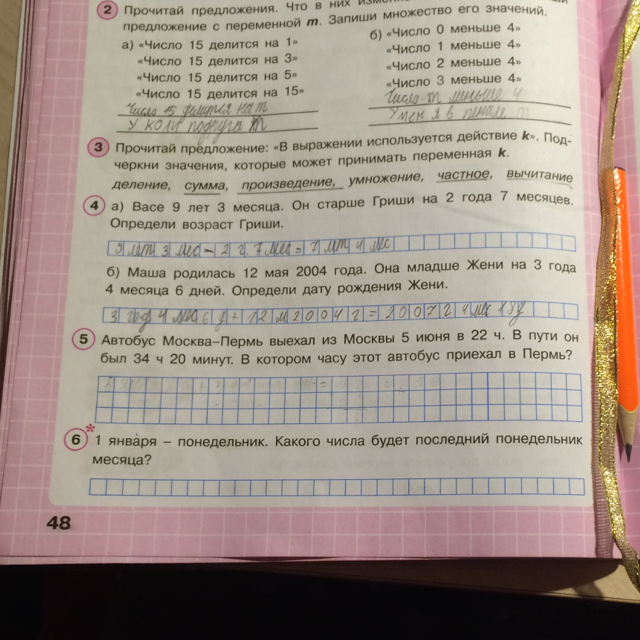 2 Прочитай предложения. Что в них
предложение с переменной m. Запиши множество его значений.
а) «Число 15 делится на 1»
«Число 15 делится на 3»
«Число 15 делится на 5»
«Число 15 делится на 15»
б) «Число 0 меньше 4»
«Число 1 меньше 4»
«Число 2 меньше 4»
«Число 3 меньше 4»
Число делится на m
Число m меньше 4
3 Прочитай предложение: «В выражении используется действие k». Под-
черкни значения, которые может принимать переменная k.
деление, сумма, произведение, умножение, частное, вычитание
4 а) Васе 9 лет 3 месяца. Он старше Гриши на 2 года 7 месяцев.
Определи возраст Гриши.
9 лет 3 мес - 2 г. 7 мес =
б) Маша родилась 12 мая 2004 года. Она младше Жени на 3 года
4 месяца 6 дней. Определи дату рождения Жени.
5 Автобус Москва–Пермь выехал из Москвы 5 июня в 22 ч. В пути он
был 34 ч 20 минут. В котором часу этот автобус приехал в Пермь?
6* 1 января – понедельник. Какого числа будет последний понедельник
месяца?
48